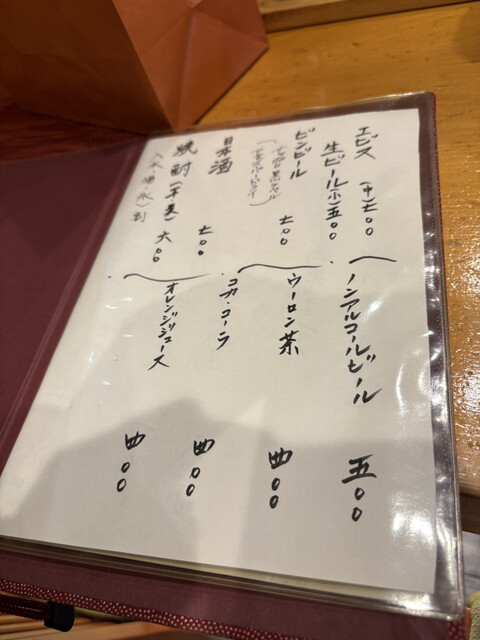 エビス (中)七〇〇
生ビール(小)五〇〇
ビンビール 七〇〇
日本酒 七〇〇
焼酎(芋・麦) 六〇〇
(水・湯・氷)割
ノンアルコールビール 五〇〇
ウーロン茶 四〇〇
コカ・コーラ 四〇〇
オレンジジュース 四〇〇